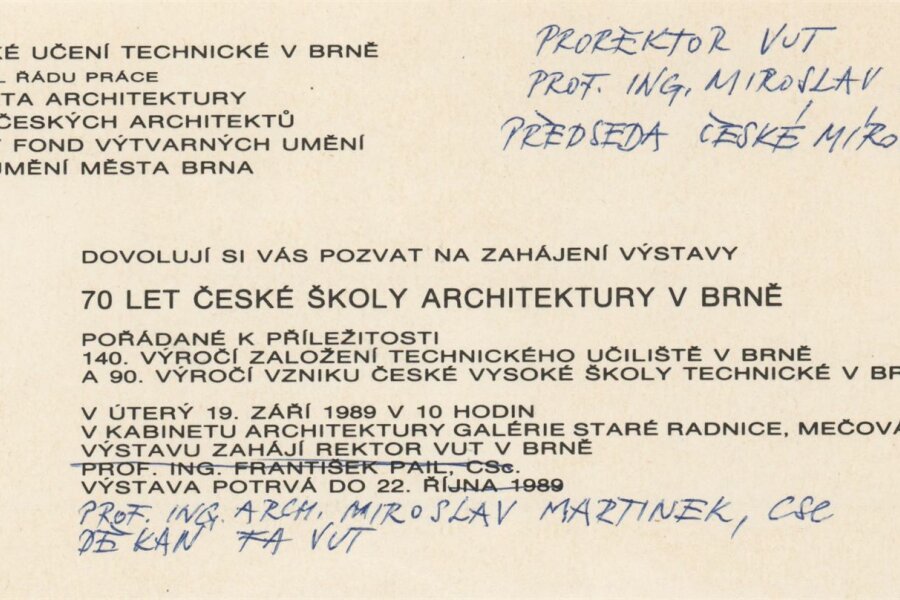 KÉ UČENÍ TECHNICKÉ V BRNĚ
L ŘÁDU PRÁCE
TA ARCHITEKTURY
ČESKÝCH ARCHITEKTŮ
FOND VÝTVARNÝCH UMĚNÍ
UMĚNÍ MĚSTA BRNA
PROREKTOR VUT
PROF. ING. MIROSLAV
PŘEDSEDA ČESKÉ MÍRO
DOVOLUJÍ SI VÁS POZVAT NA ZAHÁJENÍ VÝSTAVY
70 LET ČESKÉ ŠKOLY ARCHITEKTURY V BRNĚ
POŘÁDANÉ K PŘÍLEŽITOSTI
140. VÝROČÍ ZALOŽENÍ TECHNICKÉHO UČILIŠTĚ V BRNĚ
A 90. VÝROČÍ VZNIKU ČESKÉ VYSOKÉ ŠKOLY TECHNICKÉ V BR
V ÚTERÝ 19. ZÁŘÍ 1989 V 10 HODIN
V KABINETU ARCHITEKTURY GALÉRIE STARÉ RADNICE, MEČOVÁ
VÝSTAVU ZAHÁJÍ REKTOR VUT V BRNĚ
PROF. ING. FRANTIŠEK PAIL, CSc.
VÝSTAVA POTRVÁ DO 22. ŘÍJNA 1989
PROF. ING. ARCH. MIROSLAV MARTINEK, CSc
DĚKAN FA VUT